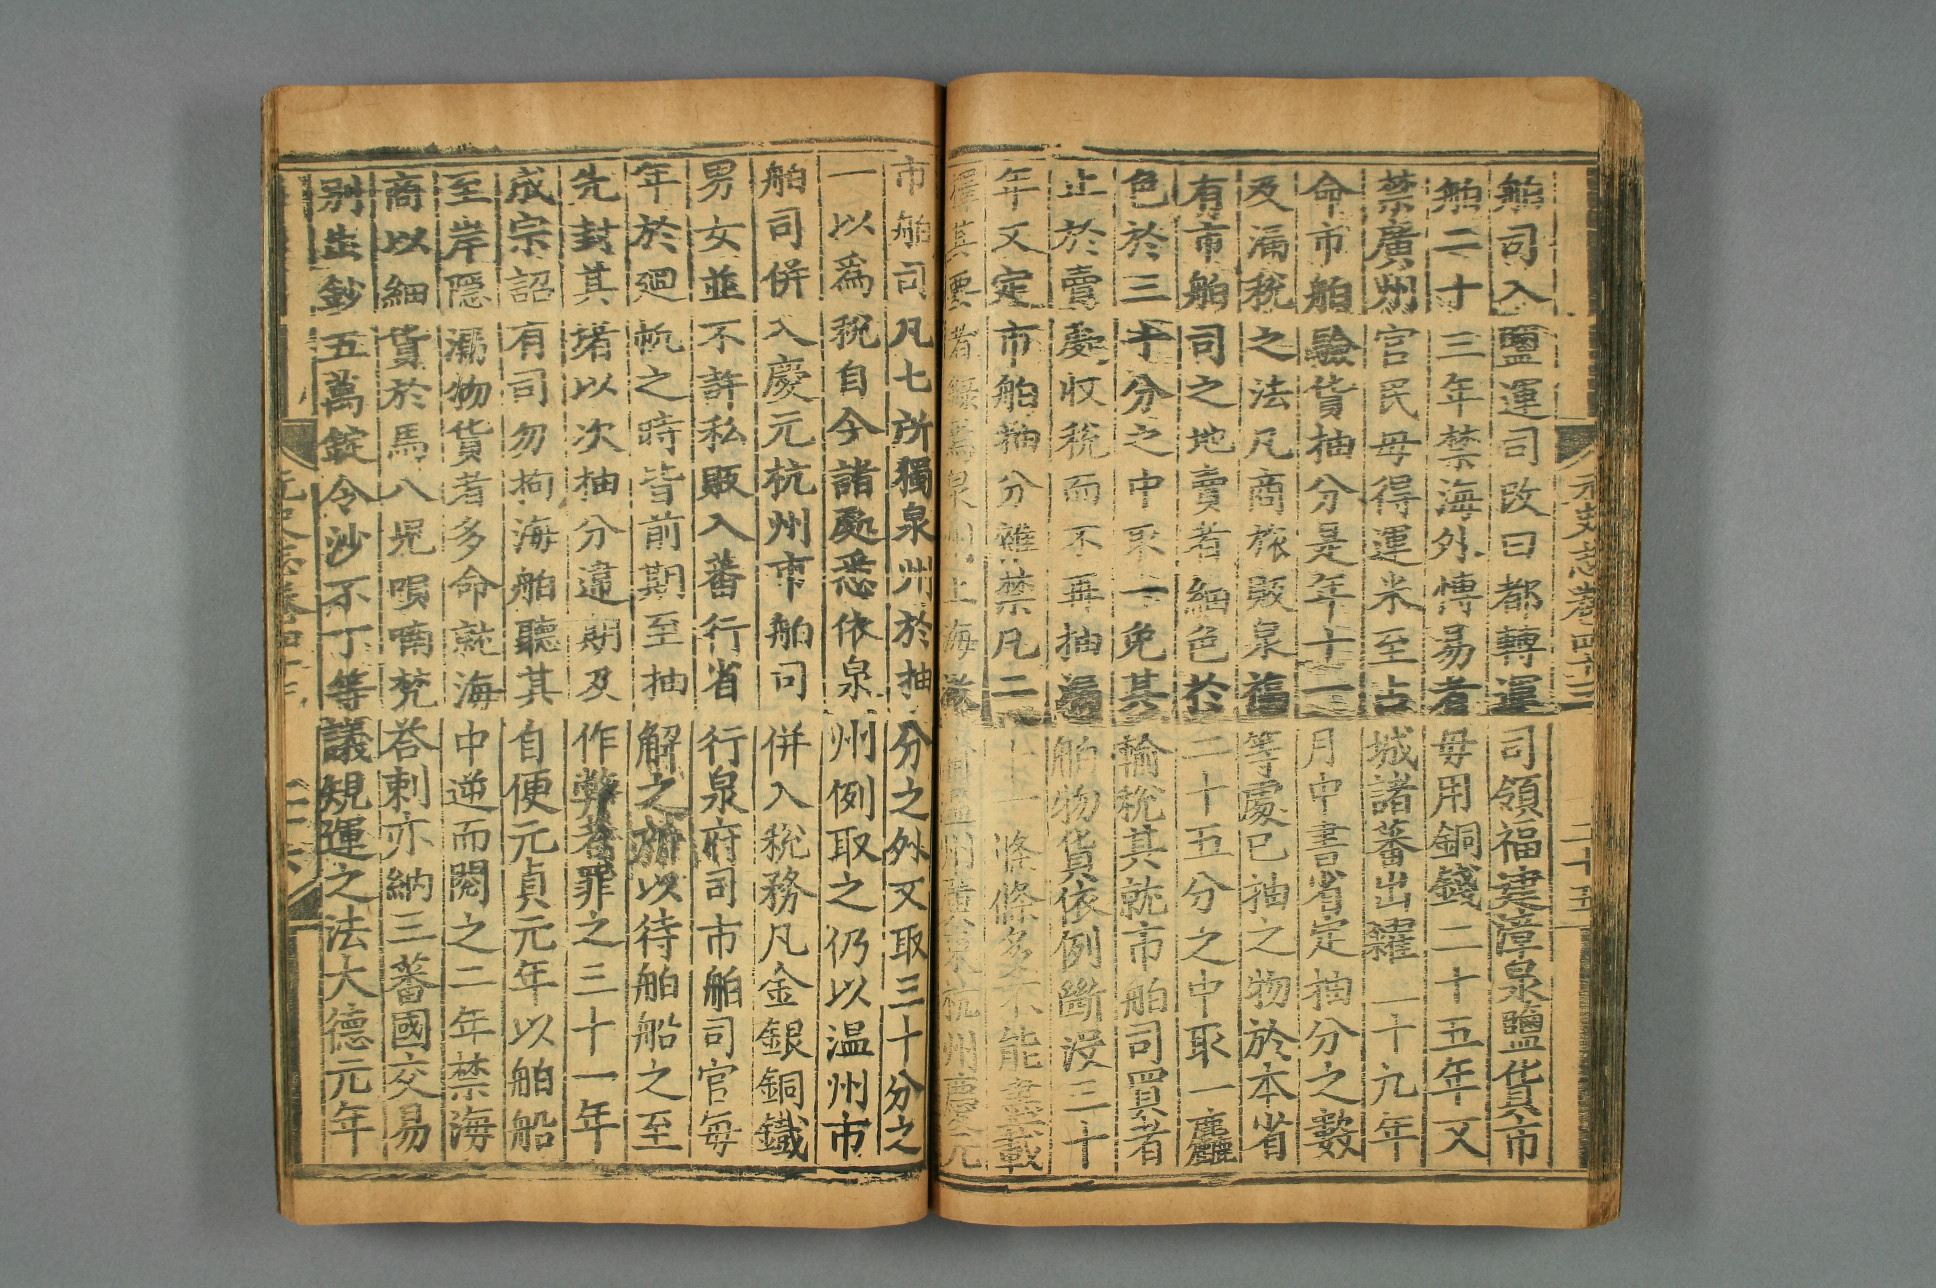 舶司入鹽運司改曰都轉運司領福建漳泉鹽貨市
舶二十三年禁海外愽易者毋用銅錢二十五年又
禁廣州官民毋得運米至占城諸蕃出糶二十九年
命市舶驗貨抽分是年十一月中書省定抽分之數
及漏稅之法凡商旅販泉舊等處已抽之物於本省
有市舶司之地賣者細色於二十五分之中取一麤
色於三十分之中取一免其輸稅其就市舶司買者
止於賣處收稅而不再抽漏舶物貨依例斷沒三十
年又定市舶抽分雜禁凡二十一條條多不能盡載
擇其要者錄焉泉州上海澉浦溫州廣東杭州慶元
市舶司凡七所獨泉州於抽分之外又取三十分之
一以爲稅自今諸處悉依泉州例取之仍以温州市
舶司併入慶元杭州市舶司併入稅務凡金銀銅鐵
男女並不許私販入蕃行省行泉府司市舶司官每
年於廻帆之時皆前期至抽解之所以待舶船之至
先封其堵以次抽分違期及作弊者罪之三十一年
成宗詔有司勿拘海舶聽其自便元貞元年以舶船
至岸隱漏物貨者多命就海中逆而閱之二年禁海
商以細貨於馬八兒唄喃梵荅剌亦納三蕃國交易
别出鈔五萬錠令沙不丁等議規運之法大德元年